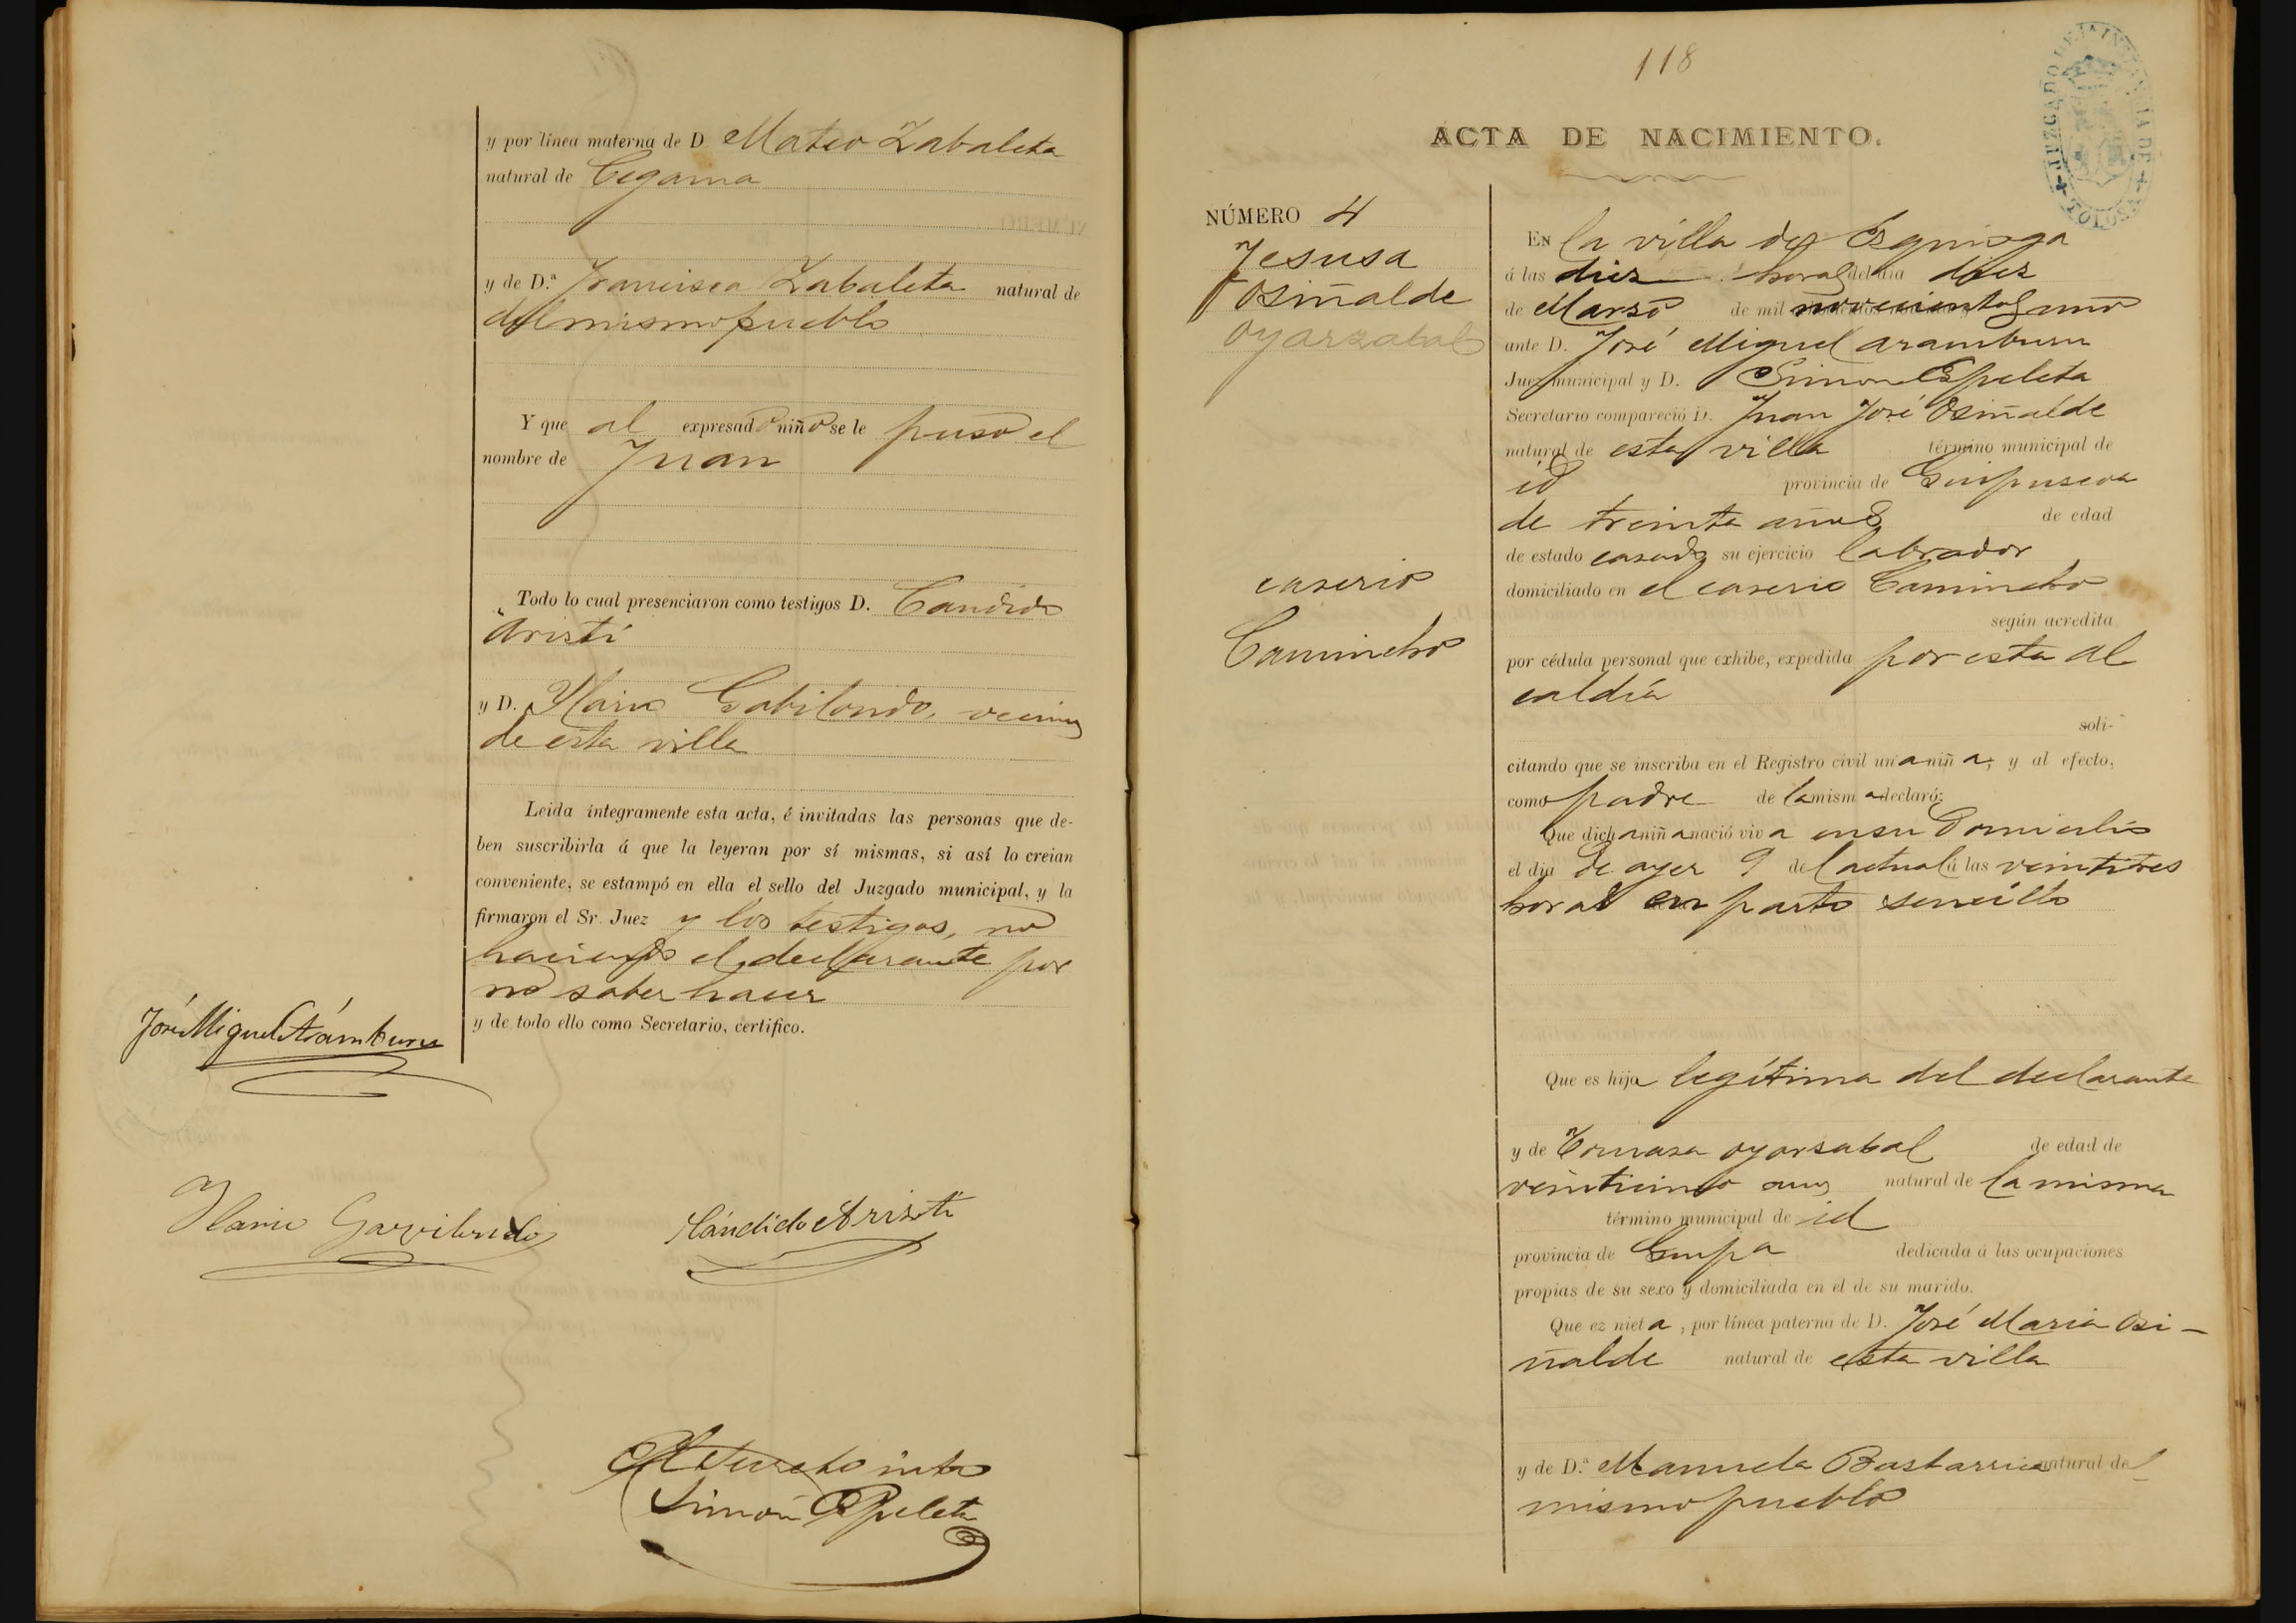 y por línea materna de D Mateo Zabaleta
natural de Cegama
y de D.ª Francisca Zabaleta natural de
del mismo pueblo
Y que al expresado niño se le puso el
nombre de Juan
Todo lo cual presenciaron como testigos D. Candido
Aristi
y D. Ylario Gabilondo, vecinos
de esta villa
Leida íntegramente esta acta, é invitadas las personas que de-
ben suscribirla á que la leyeran por sí mismas, si así lo creian
conveniente, se estampó en ella el sello del Juzgado municipal, y la
firmaron el Sr. Juez y los testigos, no
haciendo el declarante por
no saber hacer
y de todo ello como Secretario, certifico.
José Miguel Arámburu
Ylario Gavilondo Cándido Aristi
Simón Espeleta
118
JUZGADO DE 1A INSTANCIA DE TOLOSA
ACTA DE NACIMIENTO.
NÚMERO 4
Jesusa
Osiñalde
Oyarzabal
caserio
Camincho
En la villa de Ezquioga
á las diez horas del dia diez
de Marzo de mil novecientos uno
ante D. José Miguel Aramburu
Juez municipal y D. Simon Espeleta
Secretario compareció D. Juan José Osiñalde
natural de esta villa término municipal de
id provincia de Guipuscoa
de treinta años de edad
de estado casado su ejercicio labrador
domiciliado en el caserio Camincho
según acredita
por cédula personal que exhibe, expedida por esta al
caldía
soli-
citando que se inscriba en el Registro civil una niña; y al efecto,
como padre de la misma declaró:
Que dicha niña nació viva en su domicilio
el dia de ayer 9 del actual á las veintitres
horas en parto sencillo
Que es hija legítima del declarante
y de Tomasa Oyarsabal de edad de
veinticinco años natural de la misma
término municipal de id
provincia de Guipa dedicada á las ocupaciones
propias de su sexo y domiciliada en el de su marido.
Que ez nieta, por línea paterna de D. José Maria Osi-
ñalde natural de esta villa
y de D.ª Manuela Bastarrica natural del
mismo pueblo